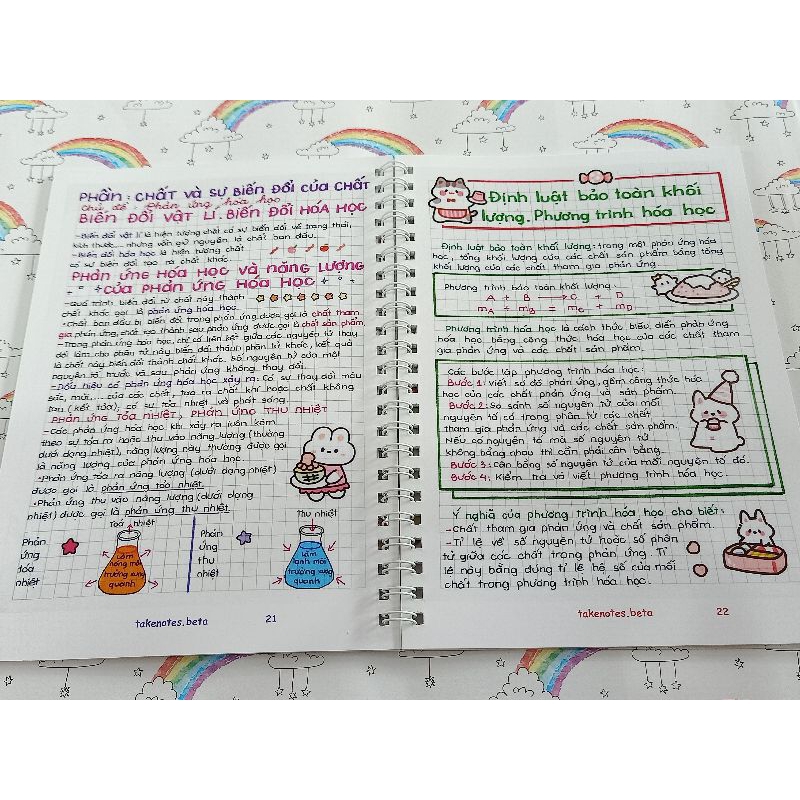 PHẦN: CHẤT VÀ SỰ BIẾN ĐỔI CỦA CHẤT
Chủ đề: Phản ứng hóa học
BIẾN ĐỔI VẬT LÍ. BIẾN ĐỔI HÓA HỌC
-Biến đổi vật lí là hiện tượng chất có sự biến đổi về trạng thái,
kích thước,... nhưng vẫn giữ nguyên là chất ban đầu.
-Biến đổi hóa học là hiện tượng chất
có sự biến đổi tạo ra chất khác.
PHẢN ỨNG HÓA HỌC VÀ NĂNG LƯỢNG
CỦA PHẢN ỨNG HÓA HỌC
-Quá trình biến đổi từ chất này thành
chất khác gọi là phản ứng hóa học.
•Chất ban đầu bị biến đổi trong phản ứng được gọi là chất tham
gia phản ứng, chất tạo thành sau phản ứng được gọi là chất sản phẩm
-Trong phản ứng hóa học, chỉ có liên kết giữa các nguyên tử thay
đổi làm cho phân tử này biến đổi thành phân tử khác, kết quả
là chất này biến đổi thành chất khác. Số nguyên tử của mỗi
nguyên tố trước và sau phản ứng không thay đổi.
-Dấu hiệu có phản ứng hóa học xảy ra: Có sự thay đổi màu
sắc, mùi,... của các chất, tạo ra chất khí hoặc chất không
tan (kết tủa), có sự tỏa nhiệt và phát sáng.
PHẢN ỨNG TỎA NHIỆT, PHẢN ỨNG THU NHIỆT
-Các phản ứng hóa học khi xảy ra luôn kèm
theo sự tỏa ra hoặc thu vào năng lượng (thường
dưới dạng nhiệt), năng lượng này thường được gọi
là năng lượng của phản ứng hóa học.
•Phản ứng tỏa ra năng lượng (dưới dạng nhiệt)
được gọi là phản ứng tỏa nhiệt.
•Phản ứng thu vào năng lượng (dưới dạng
nhiệt) được gọi là phản ứng thu nhiệt
Toả nhiệt
Phản
ứng
tỏa
nhiệt
Làm
nóng môi
trường xung
quanh
Phản
ứng
thu
nhiệt
Thu nhiệt
Làm
lạnh môi
trường xung
quanh
takenotes.beta
21
Định luật bảo toàn khối
lượng. Phương trình hóa học
Định luật bảo toàn khối lượng: trong một phản ứng hóa
học, tổng khối lượng của các chất sản phẩm bằng tổng
khối lượng của các chất tham gia phản ứng.
Phương trình bảo toàn khối lượng:
A + B → C + D
mA + mB = mC + mD
Phương trình hóa học là cách thức biểu diễn phản ứng
hóa học bằng công thức hóa học của các chất tham
gia phản ứng và các chất sản phẩm.
Các bước lập phương trình hóa học:
Bước 1: Viết sơ đồ phản ứng, gồm công thức hóa
học của các chất phản ứng và sản phẩm.
Bước 2: So sánh số nguyên tử của mỗi
nguyên tố có trong phân tử các chất
tham gia phản ứng và các chất sản phẩm.
Nếu có nguyên tố mà số nguyên tử
không bằng nhau thì cần phải cân bằng.
Bước 3: Cân bằng số nguyên tử của mỗi nguyên tố đó.
Bước 4: Kiểm tra và viết phương trình hóa học.
Ý nghĩa của phương trình hóa học cho biết:
-Chất tham gia phản ứng và chất sản phẩm.
-Tỉ lệ về số nguyên tử hoặc số phân
tử giữa các chất trong phản ứng. Tỉ
lệ này bằng đúng tỉ lệ hệ số của mỗi
chất trong phương trình hóa học.
takenotes.beta
22